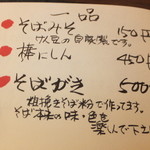 一品
そばみそ 150円
大豆の自家製です。
棒にしん 450円
そばがき 500
粗挽きそば粉で作ってます。
そば本来の味・色を
選んで下さ